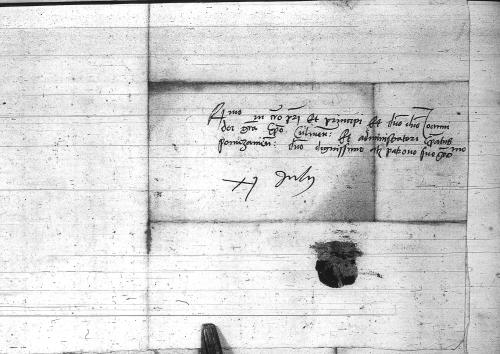 R^mo in Cro pri et principi et dno dno Joanni
dei gra Epo Culmen: Et administratori Epatus
pomezamen: dno dignissimo ac patrono suo gro mo
XI July